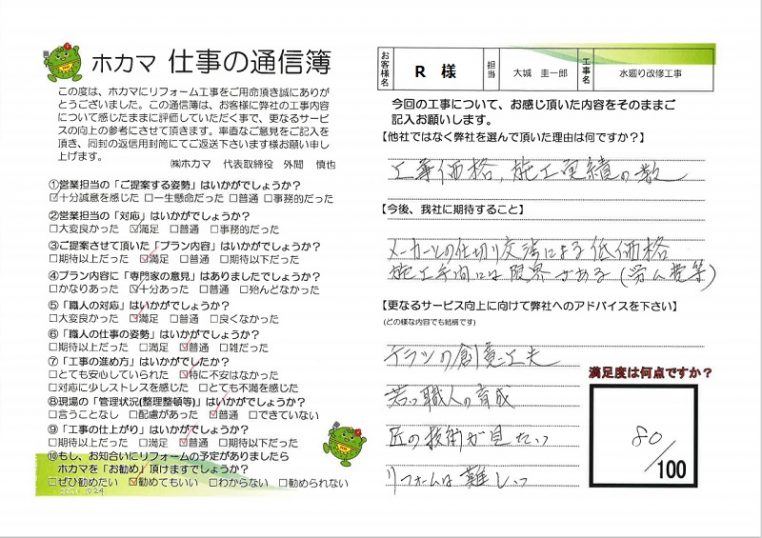 ホカマ 仕事の通信簿
この度は、ホカマにリフォーム工事をご用命頂き誠にありが
とうございました。この通信簿は、お客様に弊社の工事内容
について感じたままに評価していただく事で、更なるサービ
スの向上の参考にさせて頂きます。率直なご意見をご記入を
頂き、同封の返信用封筒にてご返送下さいます様お願い申し
上げます。
㈱ホカマ 代表取締役 外間 慎也
①営業担当の「ご提案する姿勢」はいかがでしょうか?
☑十分誠意を感じた □一生懸命だった □普通 □事務的だった
②営業担当の「対応」はいかがでしょうか?
□大変良かった ☑満足 □普通 □事務的だった
③ご提案させて頂いた「プラン内容」はいかがでしょうか?
□期待以上だった ☑満足 □普通 □期待以下だった
④プラン内容に「専門家の意見」はありましたでしょうか?
□かなりあった ☑十分あった □普通 □殆んどなかった
⑤「職人の対応」はいかがでしょうか?
□大変良かった ☑満足 □普通 □良くなかった
⑥「職人の仕事の姿勢」はいかがでしょうか?
□期待以上だった □満足 ☑普通 □雑だった
⑦「工事の進め方」はいかがでしたか?
□とても安心していられた ☑特に不安はなかった
□対応に少しストレスを感じた □とても不満を感じた
⑧現場の「管理状況(整理整頓等)」はいかがでしょうか?
□言うことなし □配慮があった ☑普通 □できていない
⑨「工事の仕上がり」はいかがでしょうか?
□期待以上だった □満足 ☑普通 □期待以下だった
⑩もし、お知合いにリフォームの予定がありましたら
ホカマを「お勧め」頂けますでしょうか?
□ぜひ勧めたい ☑勧めてもいい □わからない □勧められない
お客様名 R 様 担当 大城 圭一郎 工事名 水廻り改修工事
今回の工事について、お感じ頂いた内容をそのままご
記入お願いします。
【他社ではなく弊社を選んで頂いた理由は何ですか?】
工事価格,施工実績の数
【今後、我社に期待すること】
メーカーとの仕切り交渉による低価格
施工手間には限界がある(労ム費等)
【更なるサービス向上に向けて弊社へのアドバイスを下さい】
(どの様な内容でも結構です)
チラシの創意工夫
若い職人の育成
匠の技術が見たい
リフォームは難しい
満足度は何点ですか?
80
/100